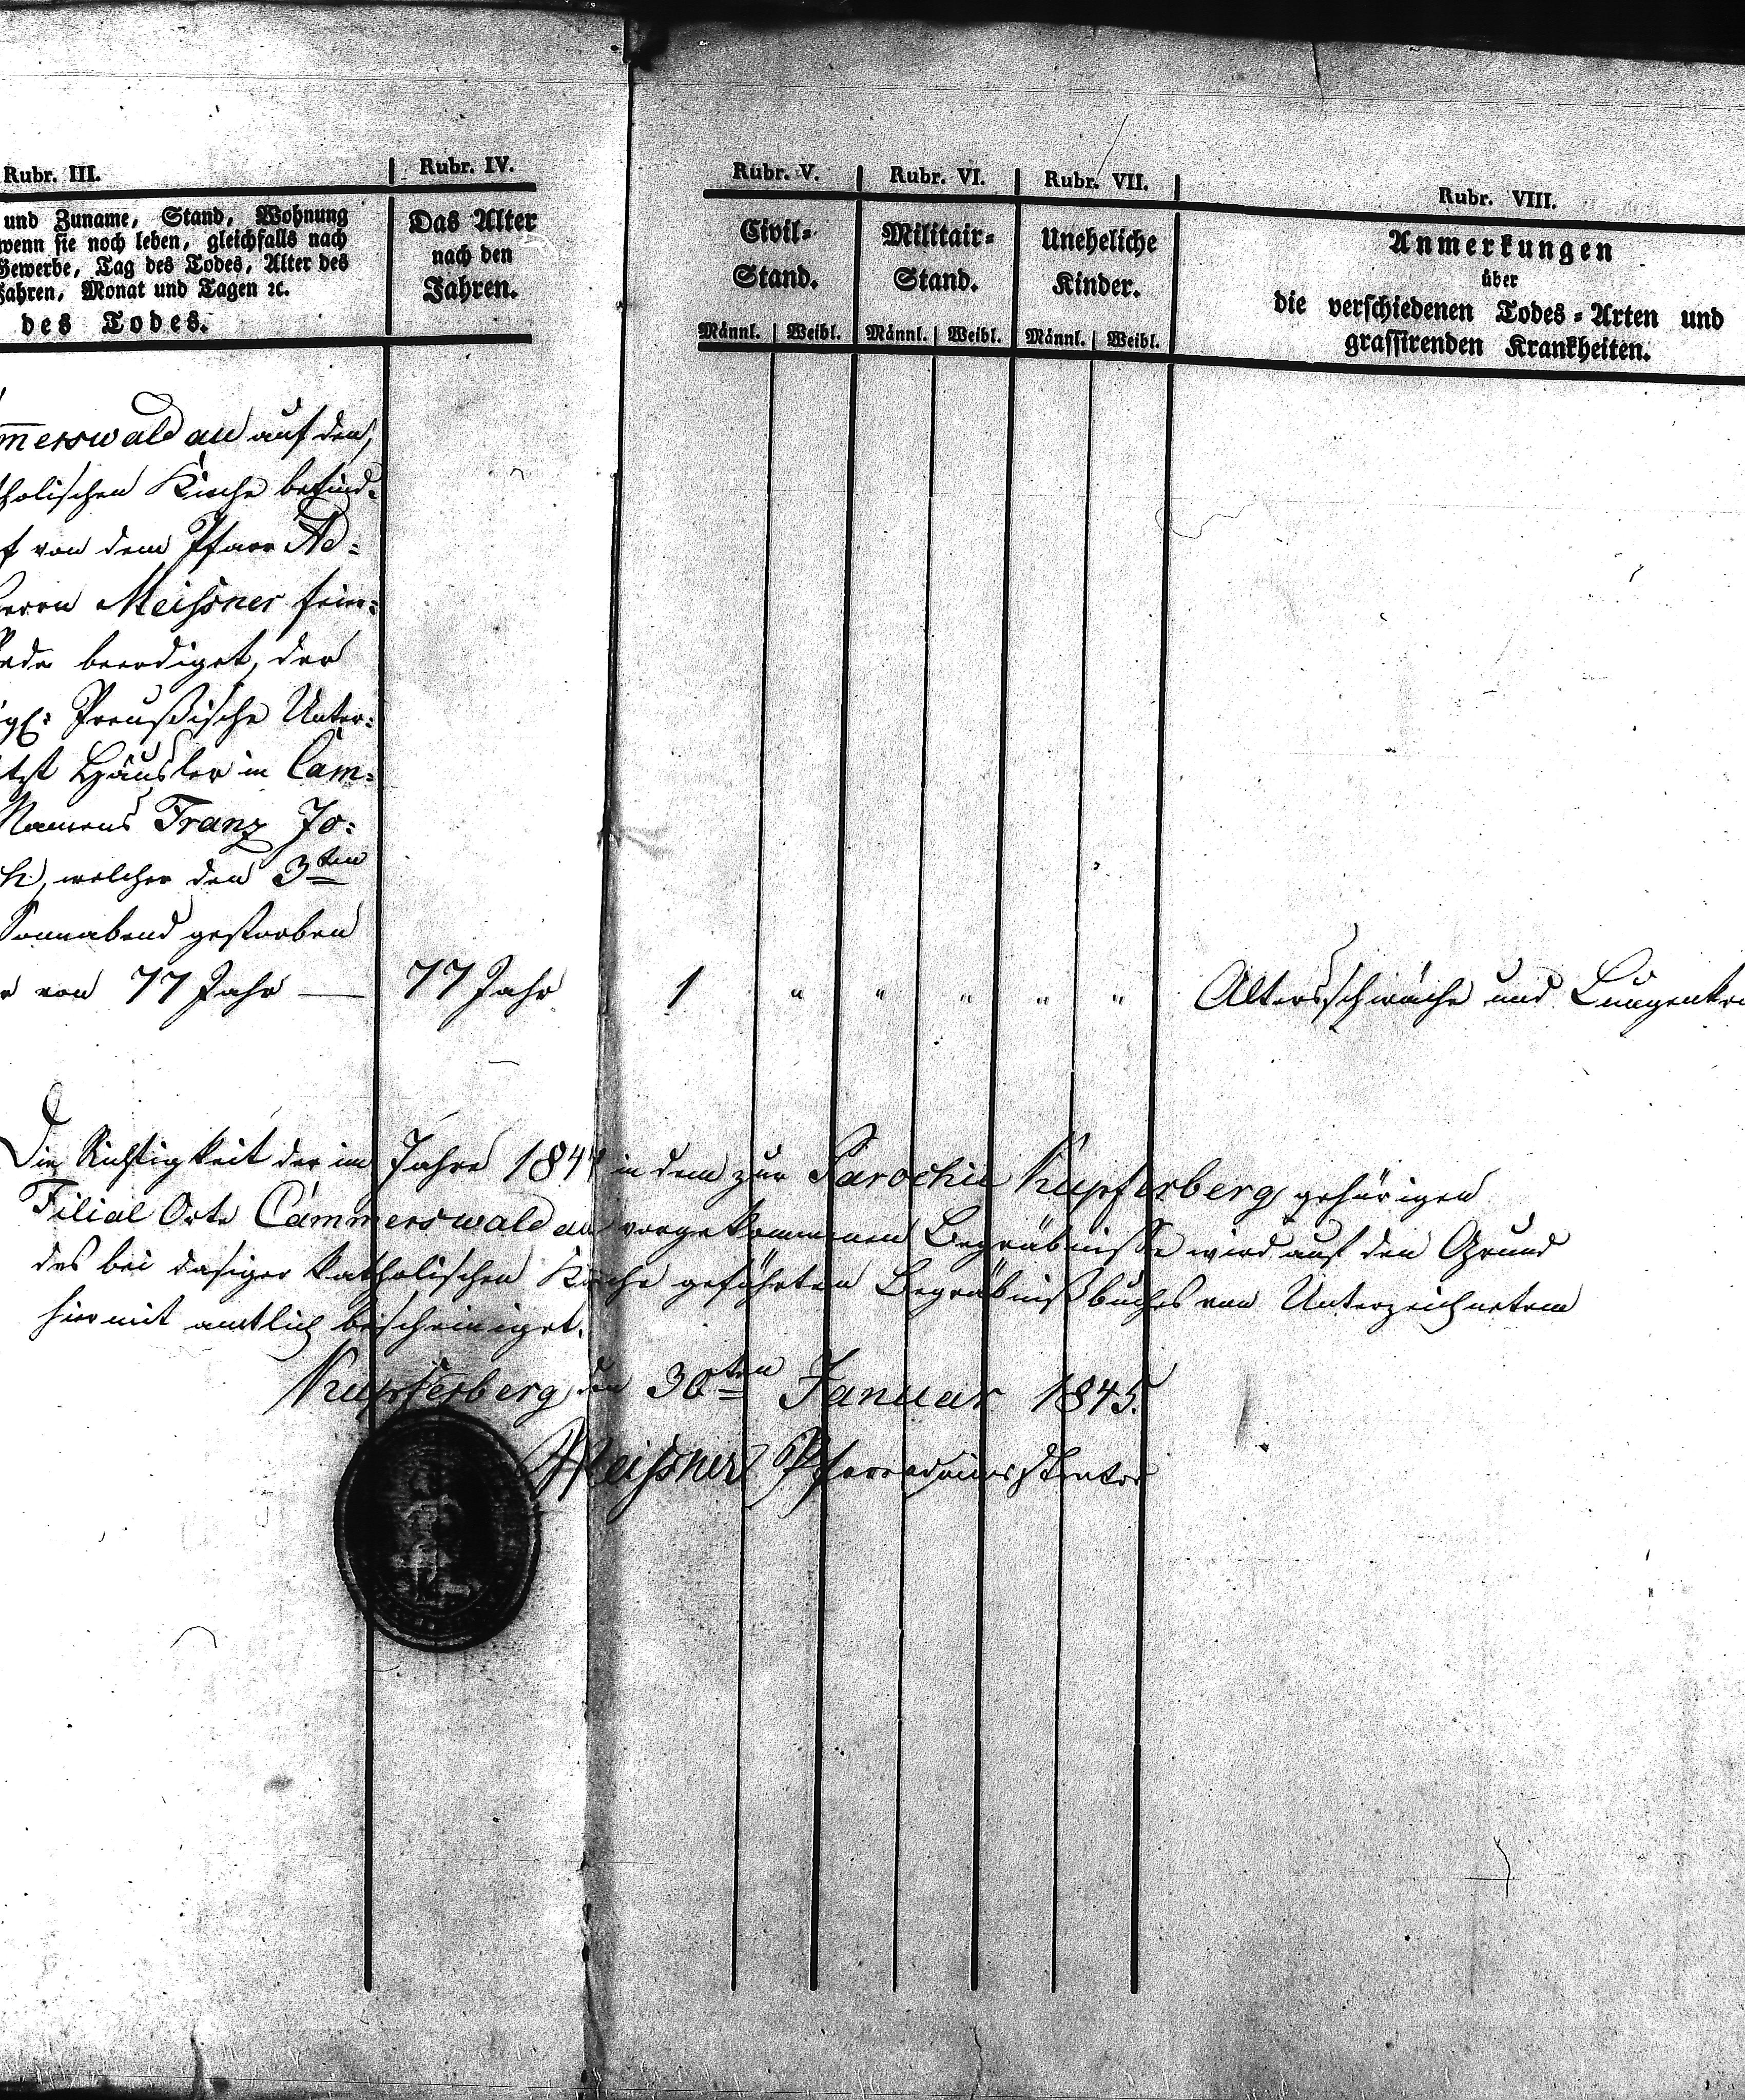 Rubr. III.
und Zuname, Stand, Wohnung
wenn sie noch leben, gleichfalls nach
Gewerbe, Tag des Todes, Alter des
Jahren, Monat und Tagen ꝛc.
des Todes.
Rubr. IV.
Das Alter
nach den
Jahren.
Rubr. V.
Civil-
Stand.
Männl. Weibl.
Rubr. VI.
Militair-
Stand.
Männl. Weibl.
Rubr. VII.
Uneheliche
Kinder.
Männl. Weibl.
Rubr. VIII.
Anmerkungen
über
die verschiedenen Todes-Arten und
grassirenden Krankheiten.
merswaldau auf den,
tholischen Kirche befind-
f von dem Pfarr Ad-
Herrn Meissner feier-
Rede beerdiget, der
igl: Preußische Unter-
Häusler in Cam-
Namens Franz Jo-
ch, welcher den 3ten
Sonnabend gestorben
r von 77 Jahr —
77 Jahr
1 " " " " "
Altersschwäche und
Die Richtigkeit der im Jahre 1844 in dem zur Parochie Kupferberg gehörigen
Filial Orte Cammerswaldau vorgekommenen Begräbnisse wird auf den Grund
des bei dasiger katholischen Kirche geführten Begräbnißbuches von Unterzeichnetem
hiermit amtlich bescheiniget.
Kupferberg den 30ten Januar 1845.
Meissner Pfarradministrator